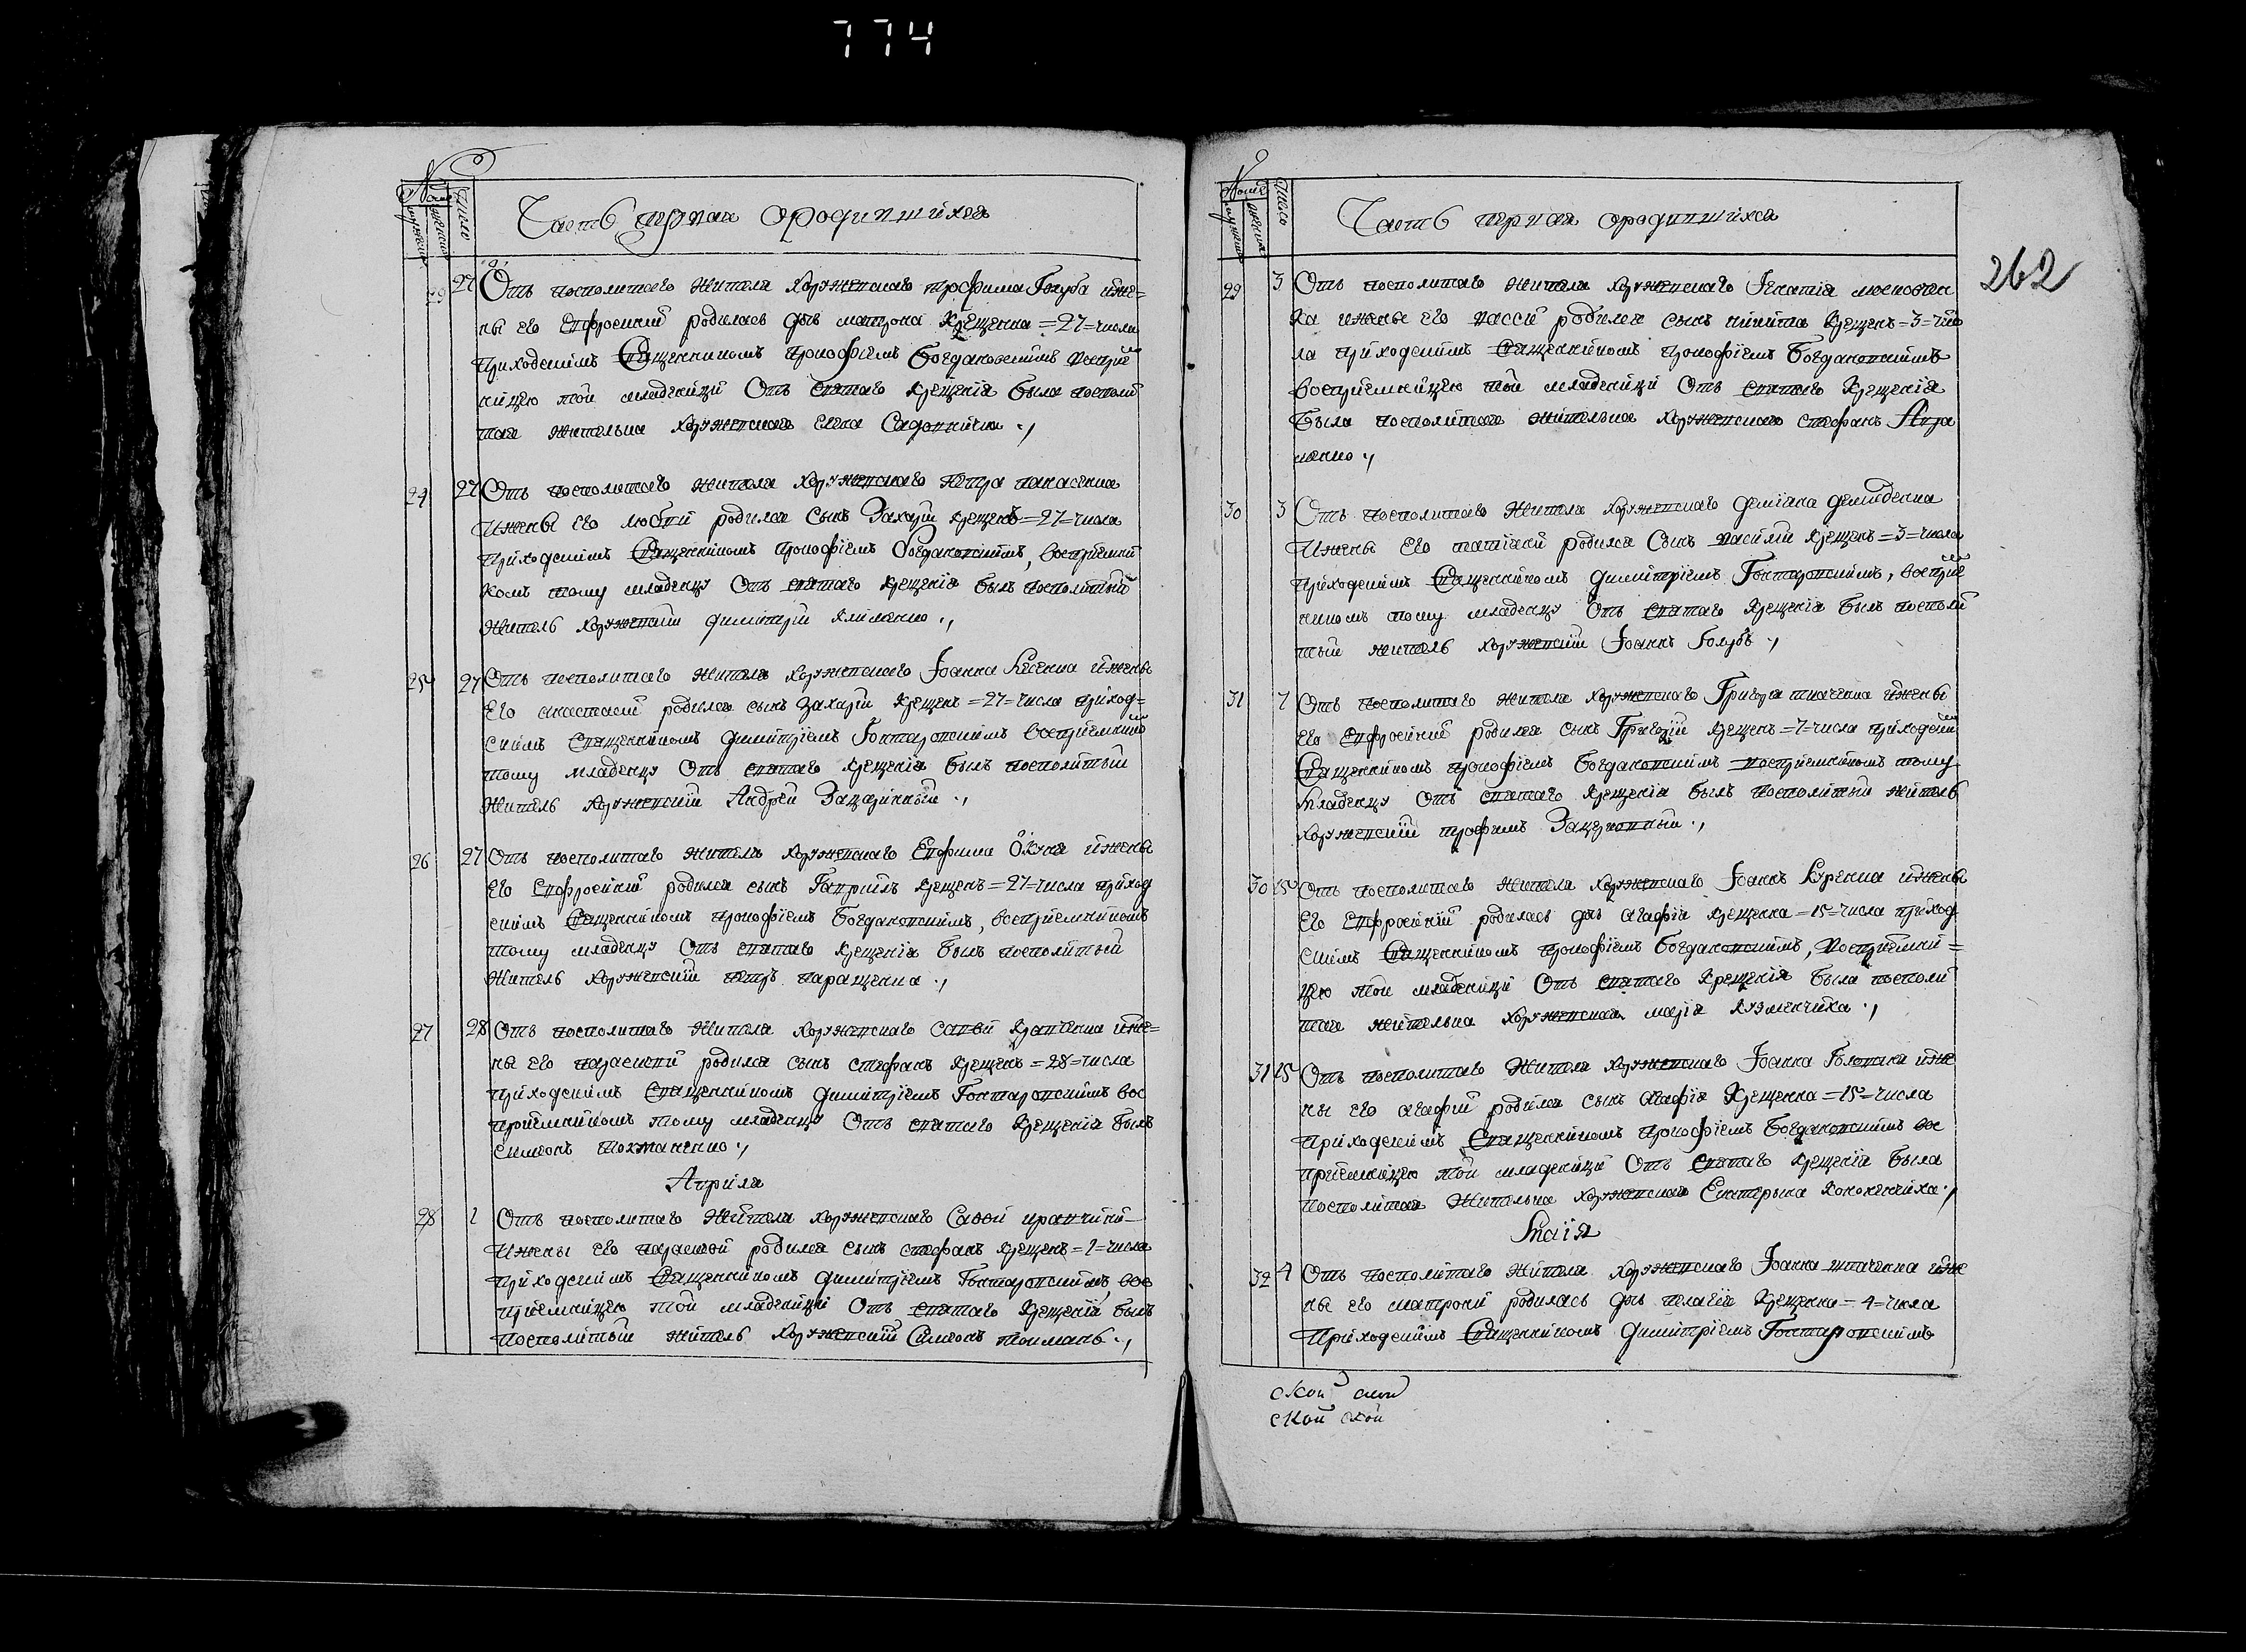 774
Часть первая ородившихся
23 27 Отъ посполитаго жителя хоружевскаго трофима Голуба ижe=
ны его Евфросинии родилась дщь матрона крещенна =27= числа
приходскимъ Священникомъ прокофіемъ Богдановскимъ восприе
ницею той младеници Отъ святаго крещенія была посполи
тая жителка хоружевская елена
24 27 Отъ посполитаго жителя хоружевскаго петра панасенка
ижены его любви родился сынъ Захарій крещенъ =27= числа
приходскимъ Священникомъ прокофіемъ Богдановскимъ, восприемни
комъ тому младенцу Отъ святаго крещенія былъ посполитый
житель хоружевскій димитрій клименко .,
25 27 Отъ посполитаго жителя хоружевскаго Іоанна ижены
Его анастасіи родился сынъ захарій крещенъ =27= числа приход=
скимъ священникомъ димитріемъ Гонтаровскимъ восприемнико
тому младенцу Отъ святаго крещенія былъ посполитый
житель хоружевскій Андрей Зацаринный .,
26 27 Отъ посполитаго жителя хоружевскаго Евфима ижены
его Евфросинии родился сынъ Гавриилъ крещенъ =27= числа приход
скимъ Священникомъ прокофіемъ Богдановскимъ, восприемникомъ
тому младенцу Отъ святаго крещенія былъ посполитый
житель хоружевскій петръ паращенка .,
27 28 Отъ посполитаго жителя хоружевскаго савви кравченка иже=
ны его параскеви родился сынъ стефанъ крещенъ =28= числа
приходскимъ священникомъ димитріемъ Гонтаровскимъ вос
приемникомъ тому младенцу Отъ святаго крещенія былъ
симеонъ .,
Априля
28 1 Отъ посполитаго жителя хоружевскаго Савви
ижены его параскеви родился сынъ стефанъ крещенъ =1= числа
приходскимъ Священникомъ димитріемъ Гонтаровскимъ, вос
приемницею той младеници Отъ святаго крещенія, былъ
посполитый житель хоружевскій Симеонъ .,
262
Часть первая ородившихся
29 3 Отъ посполитаго жителя хоружевскаго Ігнатія
ка ижены его вассы родился сынъ никита крещенъ =3= чис
ла приходскимъ Священникомъ прокофіемъ Богдановскимъ
восприемницею той младеници Отъ святаго крещенія
была посполитая жителка хоружевская стефанъ
.,
30 3 Отъ посполитаго жителя хоружевскаго деміана демиденка
ижены Его татіяни родился Сынъ василій крещенъ =3= числа
приходскимъ Священникомъ димитріемъ Гонтаровскимъ, воспріе
никомъ тому младенцу Отъ святаго крещенія былъ посполи
тый житель хоружевскій Іоаннъ Голубъ .,
31 7 Отъ посполитаго жителя хоружевскаго Григора ткаченка ижены
Его Евфросинии родился сынъ Григорій крещенъ =7= числа приходскимъ
Священникомъ прокофіемъ Богдановскимъ восприемникомъ тому
младенцу Отъ святаго крещенія былъ посполитый житель
хоружевскій трофимъ .,
30 15 Отъ посполитаго жителя хоружевскаго Іоаннъ ижены
его Евфросинии родилась дщь агафія крещенна =15= числа приход
скимъ Священникомъ прокофіемъ Богдановскимъ, восприемни=
цею той младеници Отъ святаго крещенія была посполи
тая жителка хоружевская марія кузменчиха .,
31 15 Отъ посполитаго жителя хоружевскаго Іоанна иже
ны его агафіи родился сынъ агафія крещенна =15= числа
приходскимъ Священникомъ прокофіемъ Богдановскимъ вос
приемницею той младеници Отъ святаго крещенія была
посполитая жителка хоружевская Екатерына кононенчиха .,
Маія
32 4 Отъ посполитаго жителя хоружевскаго Іоанна ткаченка иже
ны его матрони родилась дщь пелагія крещенна =4= числа
Приходскимъ Священникомъ димитріемъ Гонтаровскимъ
ской ской
ской ской